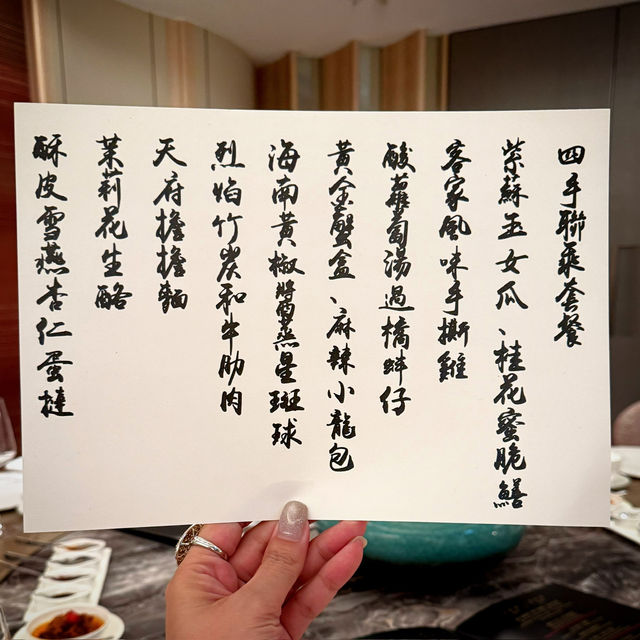 四手聯乘套餐
紫蘇玉女瓜、桂花蜜脆鱔
客家風味手撕雞
酸蘿蔔湯過橋蚌仔
黃金蟹盒、麻辣小龍包
海南黃椒醬蒸星斑球
烈焰竹炭和牛肋肉
天府擔擔麵
茉莉花生酪
酥皮雪燕杏仁蛋撻